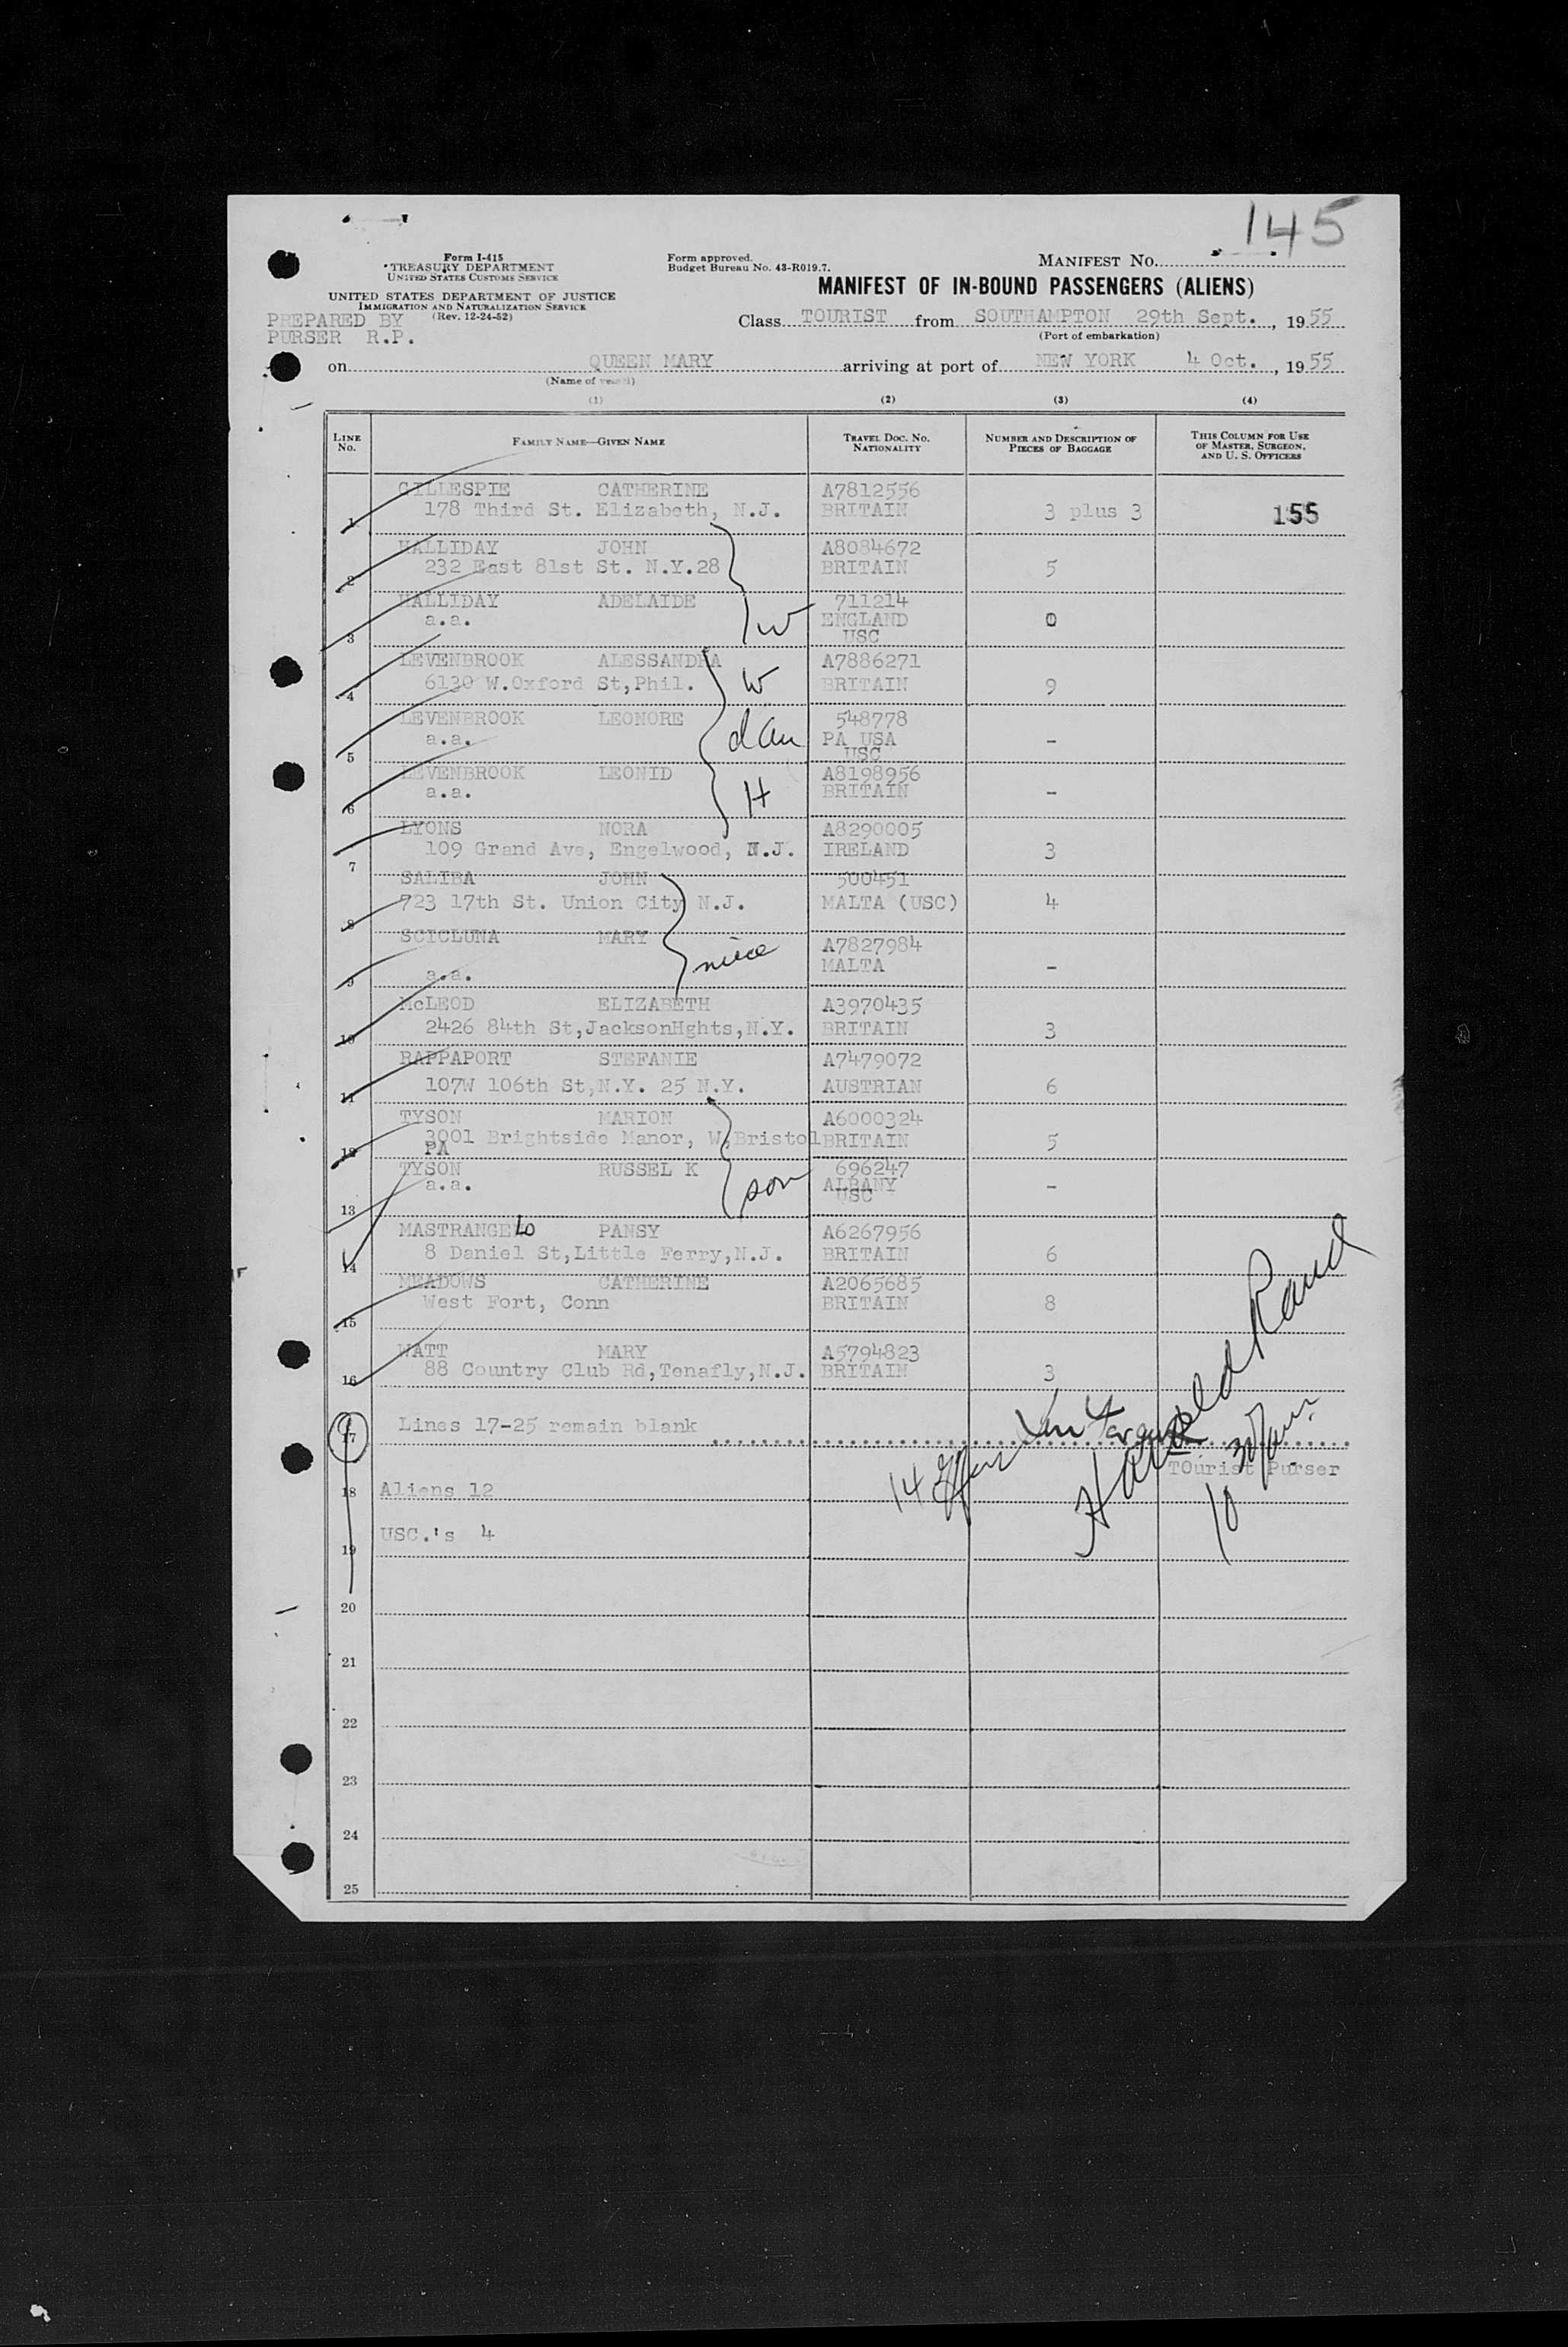 145
Form I-415
TREASURY DEPARTMENT
UNITED STATES CUSTOMS SERVICE
UNITED STATES DEPARTMENT OF JUSTICE
IMMIGRATION AND NATURALIZATION SERVICE
(Rev. 12-24-52)
PREPARED BY
PURSER R.P.
Form approved.
Budget Bureau No. 43-R019.7.
MANIFEST NO.
MANIFEST OF IN-BOUND PASSENGERS (ALIENS)
Class TOURIST from SOUTHAMPTON 29th Sept., 1955
(Port of embarkation)
on QUEEN MARY arriving at port of NEW YORK 4 Oct., 1955
(Name of vessel)
(1) (2) (3) (4)
LINE No. FAMILY NAME—GIVEN NAME TRAVEL DOC. NO. NATIONALITY NUMBER AND DESCRIPTION OF PIECES OF BAGGAGE THIS COLUMN FOR USE OF MASTER, SURGEON, AND U. S. OFFICERS
GILLESPIE CATHERINE A7812556
1 178 Third St. Elizabeth, N.J. BRITAIN 3 plus 3 155
HALLIDAY JOHN A8084672
2 232 East 81st St. N.Y.28 BRITAIN 5
HALLIDAY ADELAIDE 711214
3 a.a. W ENGLAND 0
USC
LEVENBROOK ALESSANDRA A7886271
4 6130 W.Oxford St,Phil. W BRITAIN 9
LEVENBROOK LEONORE 548778
5 a.a. dau PA USA -
USC
LEVENBROOK LEONID A8198956
6 a.a. H BRITAIN -
LYONS NORA A8290005
7 109 Grand Ave, Engelwood, N.J. IRELAND 3
SALIBA JOHN 500451
8 723 17th St. Union City N.J. MALTA (USC) 4
SCICLUNA MARY A7827984
9 a.a. niece MALTA -
McLEOD ELIZABETH A3970435
10 2426 84th St,JacksonHghts,N.Y. BRITAIN 3
RAPPAPORT STEFANIE A7479072
11 107W 106th St,N.Y. 25 N.Y. AUSTRIAN 6
TYSON MARION A6000324
12 3001 Brightside Manor, W,Bristol BRITAIN 5
PA
TYSON RUSSEL K 696247
13 a.a. son ALBANY -
USC
MASTRANGELO PANSY A6267956
14 8 Daniel St,Little Ferry,N.J. BRITAIN 6
MEADOWS CATHERINE A2065685
15 West Fort, Conn BRITAIN 8
WATT MARY A5794823
16 88 Country Club Rd,Tenafly,N.J. BRITAIN 3
17 Lines 17-25 remain blank
TOurist Purser
18 Aliens 12 14
19 USC.'s 4 10
20
21
22
23
24
25